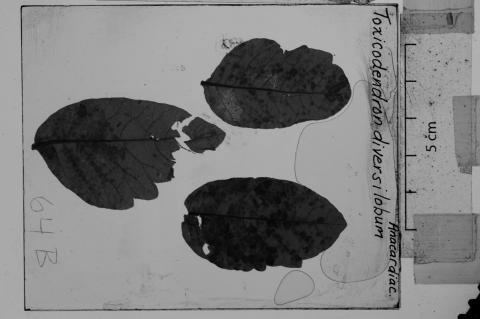 Toxicodendron diversilobum
Anacardiac.
5 cm
64B